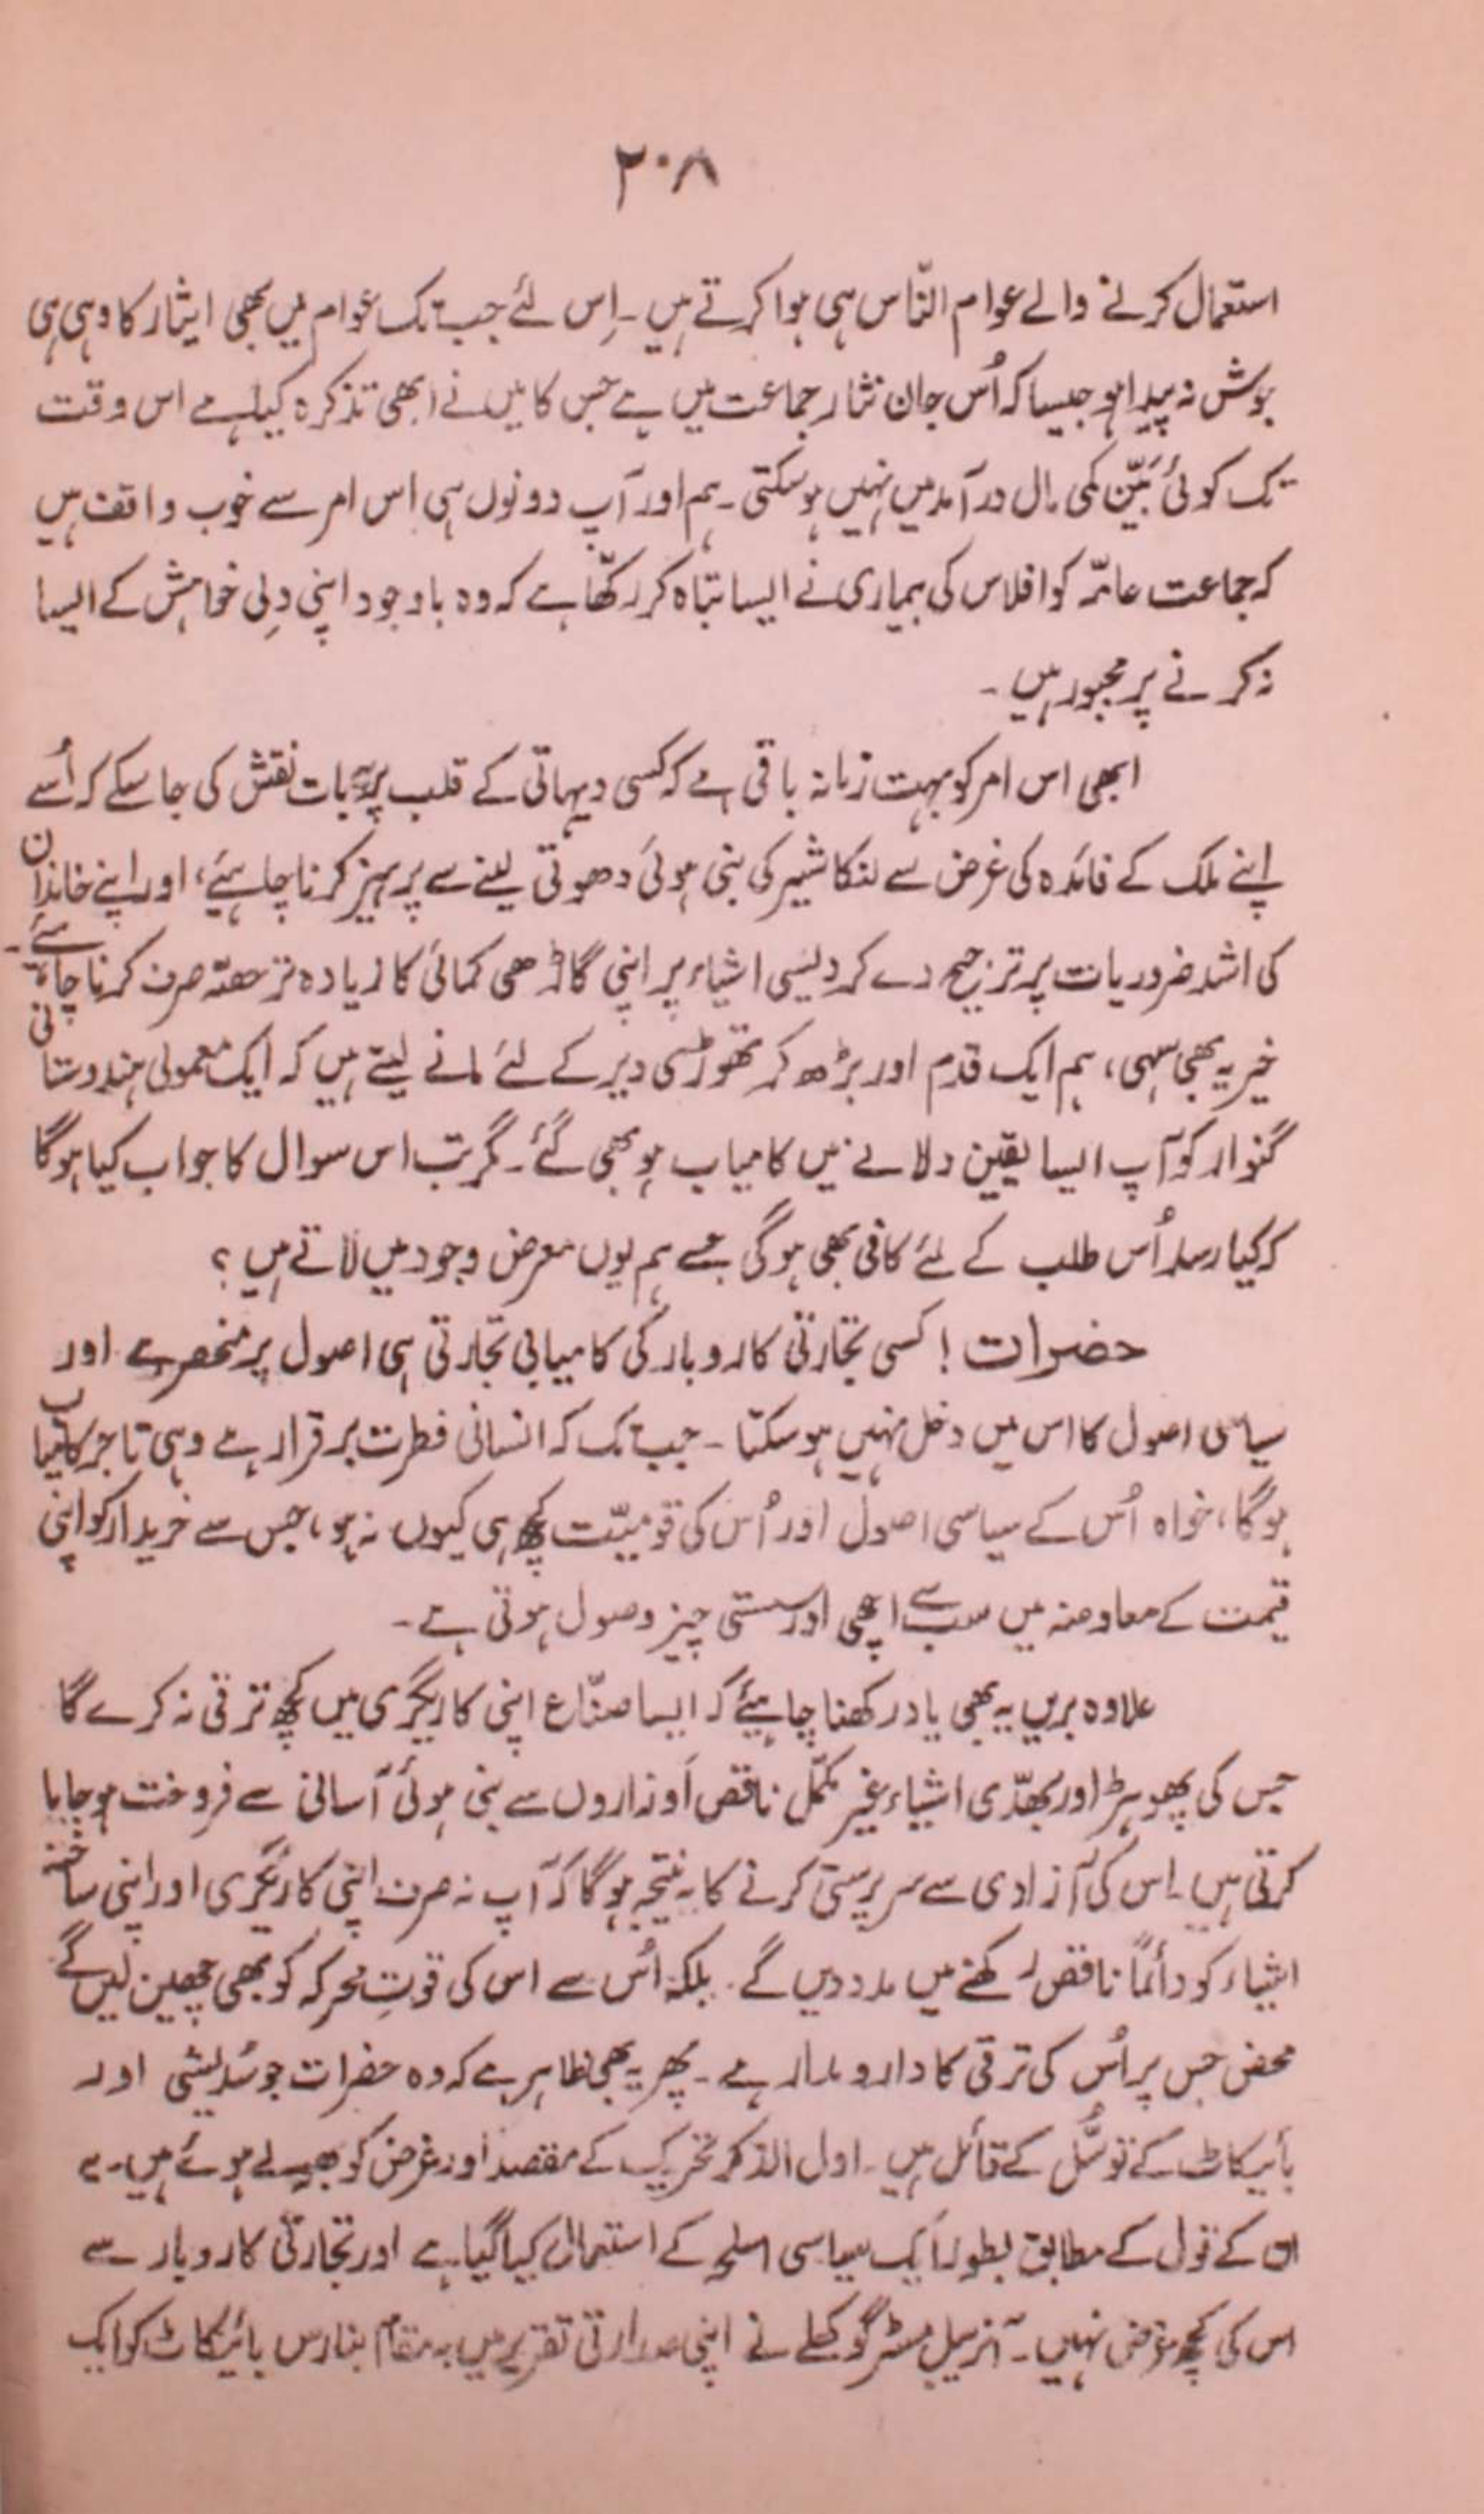 ۲۰۸
استعمال کرنے والے عوام النّاس ہی ہوا کرتے ہیں۔ اِس لئے جب تک عوام میں بھی ایثار کا وہی ہی
جوش نہ پیدا ہو جیسا کہ اُس جان نثار جماعت میں ہے جس کا میں نے ابھی تذکرہ کیا ہے اس وقت
تک کوئی بَیّن کمی مال درآمد میں نہیں ہوسکتی۔ ہم اور آپ دونوں ہی اس امر سے خوب واقف ہیں
کہ جماعت عامّہ کو افلاس کی بیماری نے ایسا تباہ کر رکھّا ہے کہ وہ باوجود اپنی دِلی خواہش کے ایسا
نہ کرنے پر مجبور ہیں۔
ابھی اس امر کو بہت زمانہ باقی ہے کہ کسی دیہاتی کے قلب پر یہ بات نقش کی جا سکے کہ اُسے
اپنے ملک کے فائدہ کی غرض سے لنکاشیر کی بنی ہوئی دھوتی لینے سے پرہیز کرنا چاہیئے، اور اپنے خاندان
کی اشد ضروریات پر ترجیح دے کر دیسی اشیاء پر اپنی گاڑھی کمائی کا زیادہ تر حصّہ صرف کرنا چاہیئے۔
خیر یہ بھی سہی، ہم ایک قدم اور بڑھ کر تھوڑی سی دیر کے لئے مانے لیتے ہیں کہ ایک معمولی ہندوستانی
گنوار کو آپ ایسا یقین دلانے میں کامیاب ہو بھی گئے۔ مگر تب اس سوال کا جواب کیا ہوگا
کہ کیا رسد اُس طلب کے لئے کافی بھی ہوگی جسے ہم یوں معرض وجود میں لاتے ہیں؟
حضرات! کسی تجارتی کاروبار کی کامیابی تجارتی ہی اصول پر منحصر ہے اور
سیاسی اصول کا اس میں دخل نہیں ہوسکتا۔ جب تک کہ انسانی فطرت برقرار ہے وہی تاجر کامیاب
ہوگا، خواہ اُس کے سیاسی اصول اور اُس کی قومیّت کچھ ہی کیوں نہ ہو، جس سے خریدار کو اپنی
قیمت کے معاوضہ میں سب سے اچھی اور سستی چیز وصول ہوتی ہے۔
علاوہ بریں یہ بھی یاد رکھنا چاہیئے کہ ایسا صنّاع اپنی کاریگری میں کچھ ترقی نہ کرے گا
جس کی پھوہڑ اور بھدّی اشیاء غیر مکمّل ناقص اَوزاروں سے بنی ہوئی آسانی سے فروخت ہوجایا
کرتی ہیں۔ اس کی آزادی سے سرپرستی کرنے کا یہ نتیجہ ہوگا کہ آپ نہ صرف اپنی کاریگری اور اپنی ساختہ
اشیاء کو دائماً ناقص رکھنے میں مدد دیں گے۔ بلکہ اُس سے اس کی قوتِ محرکہ کو بھی چھین لیں گے
محض جس پر اُس کی ترقی کا دارومدار ہے۔ پھر یہ بھی ظاہر ہے کہ وہ حضرات جو سُدیشی اور
بائیکاٹ کے توسُّل کے قائل ہیں۔ اول الذکر تحریک کے مقصد اور غرض کو بھولے ہوئے ہیں۔ یہ
ان کے قول کے مطابق بطور ایک سیاسی اسلحہ کے استعمال کیا گیا ہے اور تجارتی کاروبار سے
اس کی کچھ غرض نہیں۔ آنریبل مسٹر گوکھلے نے اپنی صدارتی تقریر میں بہ مقام بنارس بائیکاٹ کو ایک